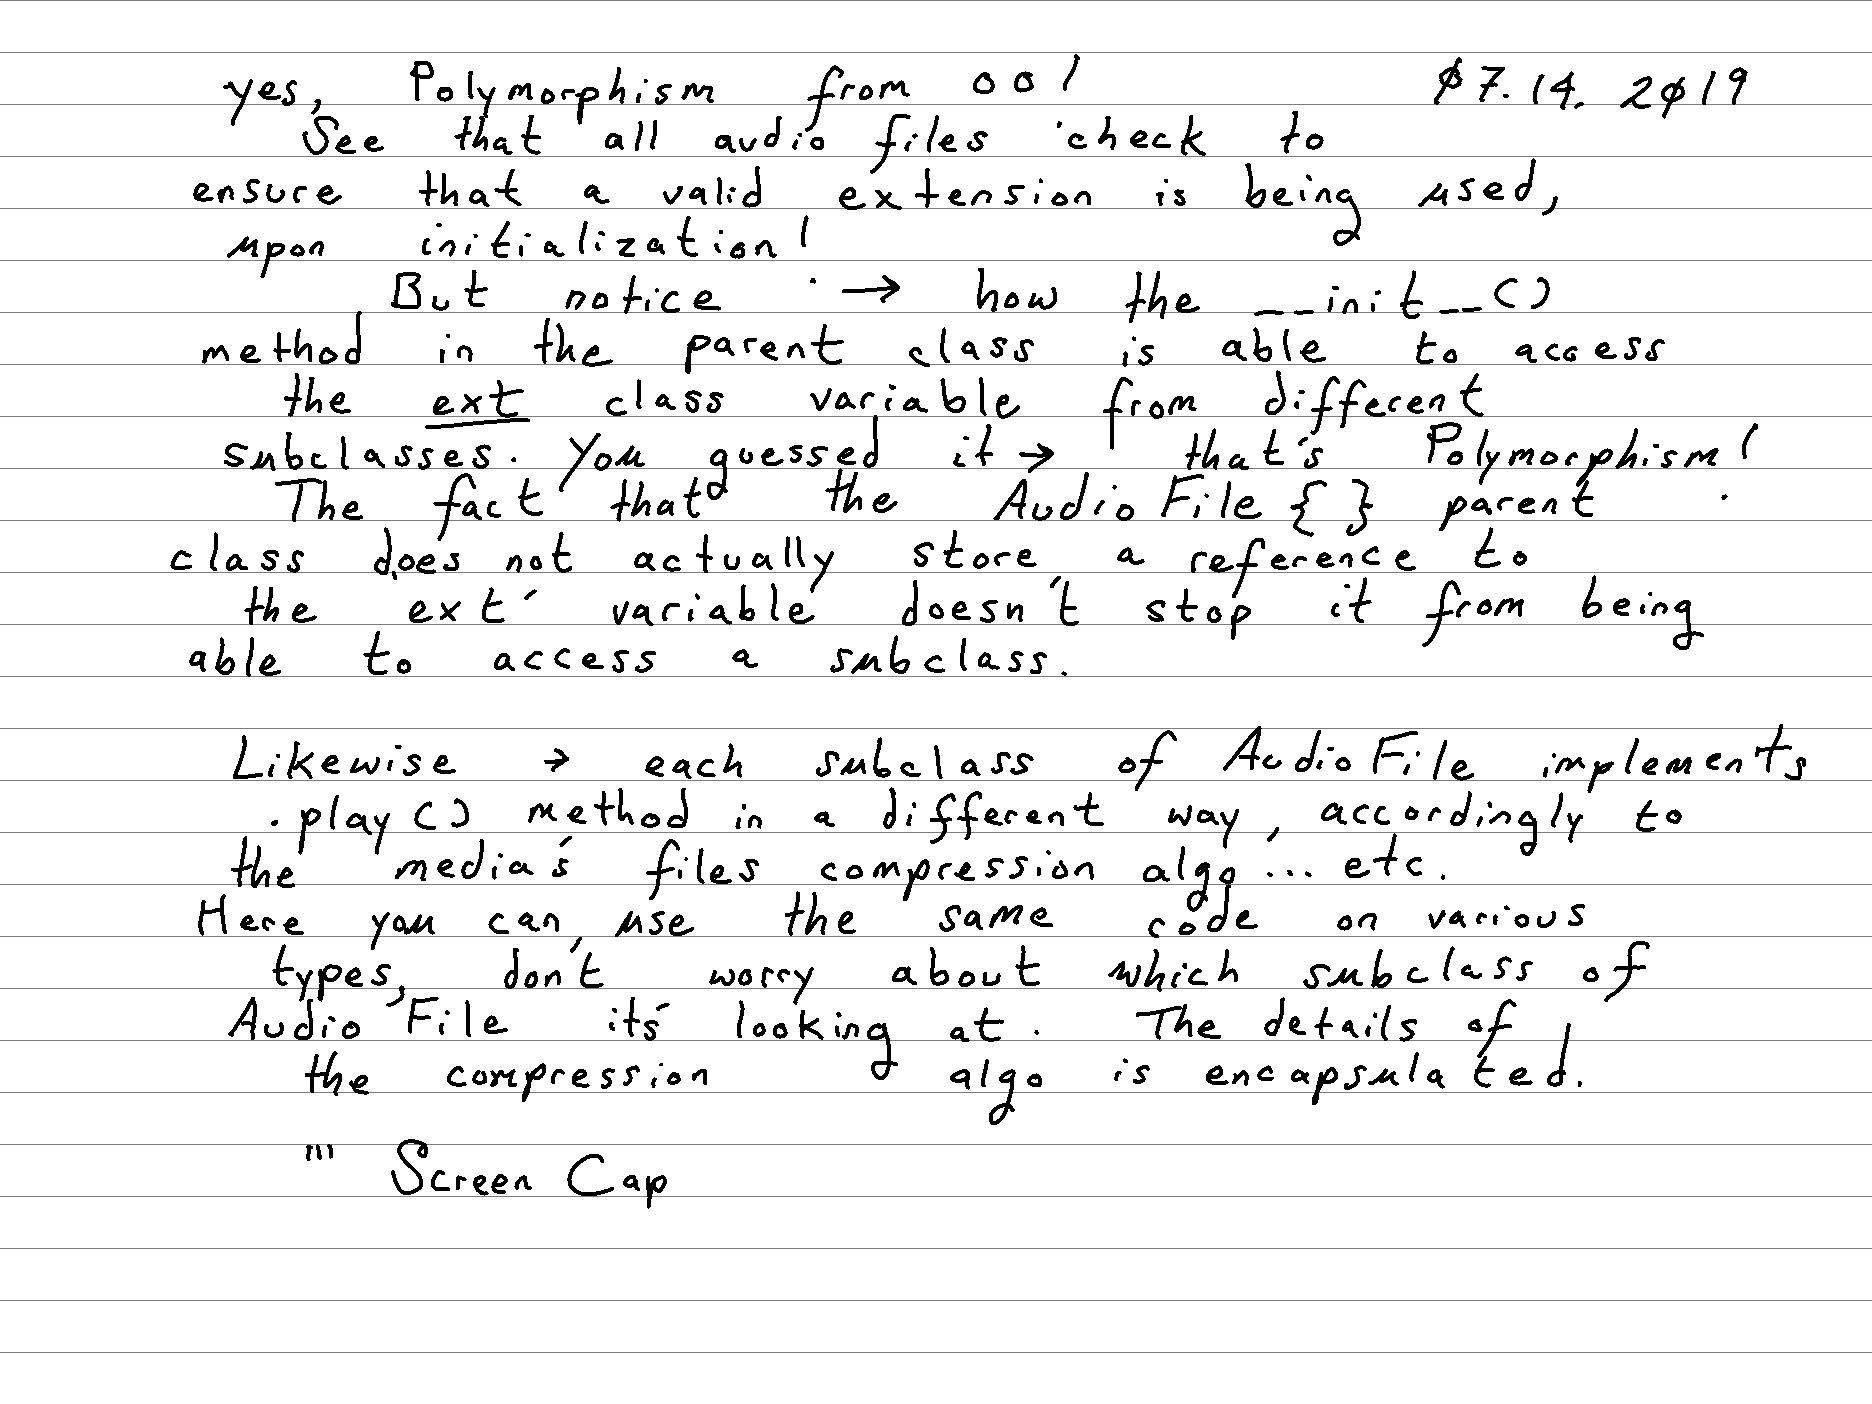 yes, Polymorphism from oo! Ø7.14.2Ø19
See that all audio files check to
ensure that a valid extension is being used,
upon initialization!
But notice → how the __init__()
method in the parent class is able to access
the ext class variable from different
subclasses. You guessed it → that's Polymorphism!
The fact that the AudioFile {} parent
class does not actually store a reference to
the ext variable doesn't stop it from being
able to access a subclass.
Likewise → each subclass of AudioFile implements
.play() method in a different way, accordingly to
the media's files compression algo... etc.
Here you can use the same code on various
types, don't worry about which subclass of
AudioFile it's looking at. The details of
the compression algo is encapsulated.
''' Screen Cap